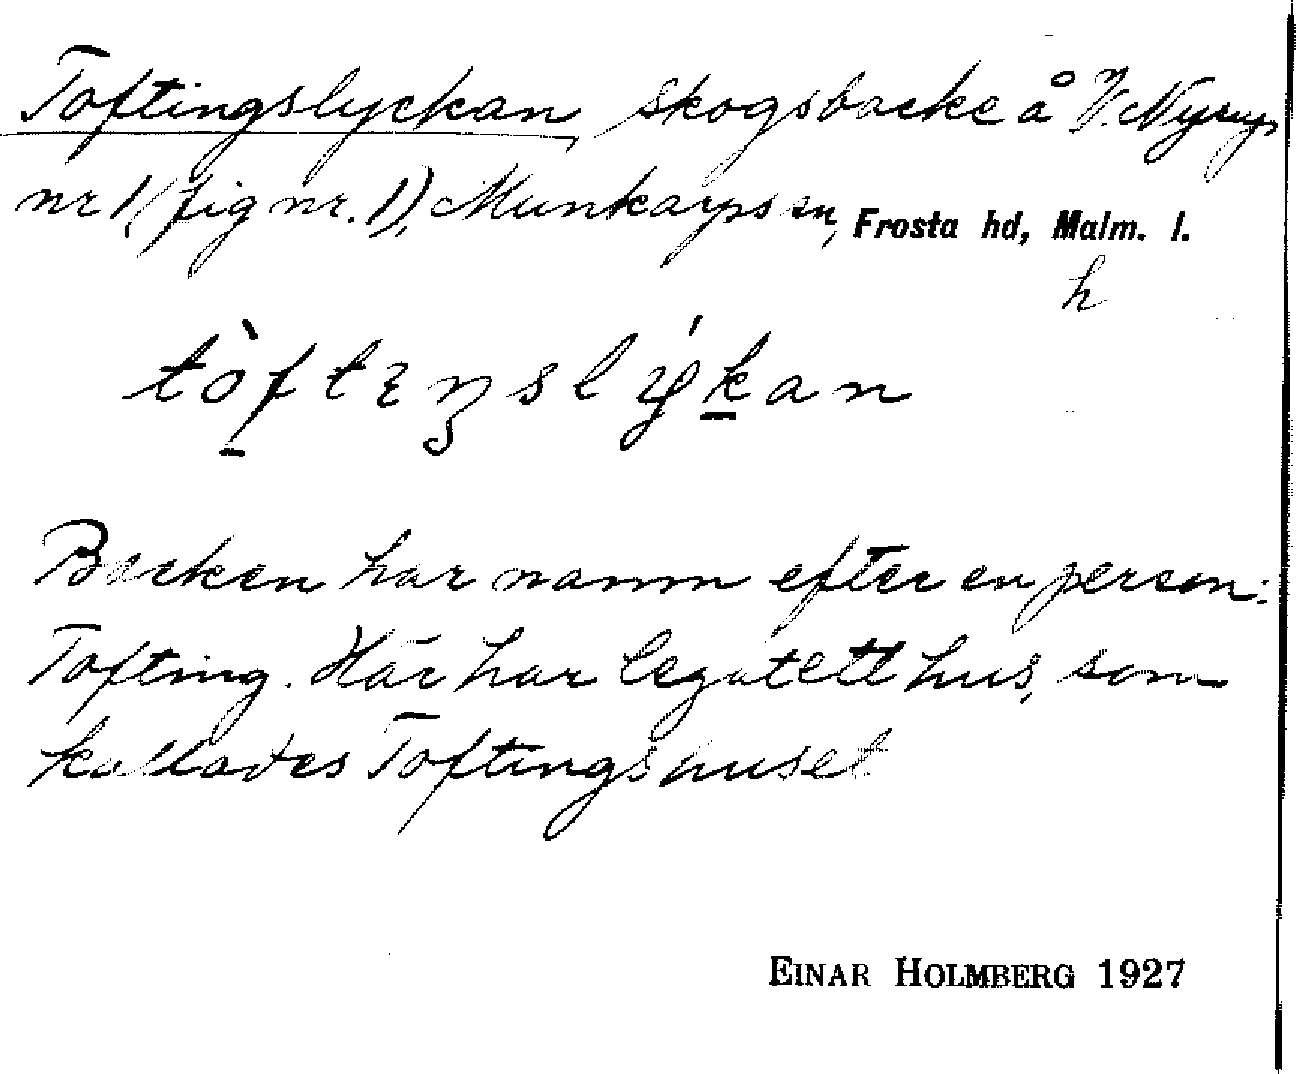 Toftingslyckan, skogsbacke å V. Nyryp
nr 1 (fig nr. 1), Munkarps sn, Frosta hd, Malm. l.
h
Backen har namn efter en person:
Tofting. Här har legat ett hus, som
kallades Toftingshuset
EINAR HOLMBERG 1927